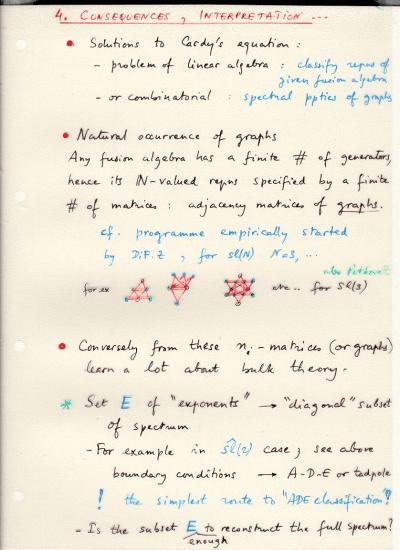 4. CONSEQUENCES, INTERPRETATION ...
• Solutions to Cardy's equation :
- problem of linear algebra : classify repns of
given fusion algebra
- or combinatorial : spectral ppties of graphs
• Natural occurrence of graphs
Any fusion algebra has a finite # of generators,
hence its N-valued repns specified by a finite
# of matrices : adjacency matrices of graphs.
cf. programme empirically started
by DiF. Z , for sl(N) N=3, ...
also Petkova-Z
for ex
etc .. for sl(3)
• Conversely from these n_i - matrices (or graphs)
learn a lot about bulk theory.
* Set E of "exponents" → "diagonal" subset
of spectrum
- For example in ŝl(2) case, see above
boundary conditions → A-D-E or tadpole
! the simplest route to "ADE classification"!
- Is the subset E enough to reconstruct the full spectrum?